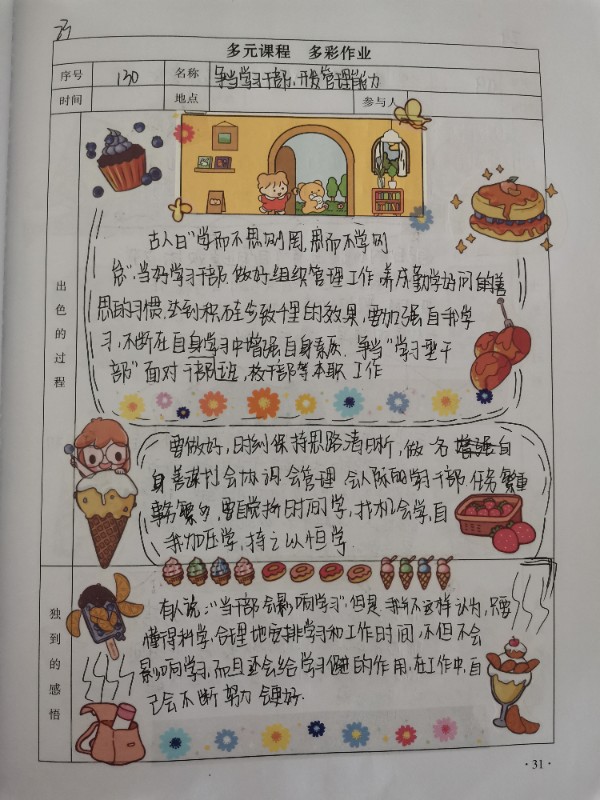 多元课程 多彩作业
序号 130 名称 争当学习干部、开发管理能力
时间 地点 参与人
出色的过程
古人曰"学而不思则罔,思而不学则
怠".当好学习干部,做好组织管理工作 养成勤学好问的善
思的习惯,达到积硅步致千里的效果,要加强自我学
习,不断在自身学习中增强自身素质.争当"学习型干
部"面对干部上班,校干部等本职工作
要做好,时刻保持思路清晰,做名增强自
身善谋划会协调会管理 会人际的学习干部 任务繁重
事务繁多,要自觉挤时间学,找机会学,自
我加压学,持之以恒学
独到的感悟
有人说:"当干部会影响学习",但是我不这样认为,只要
懂得科学,合理地安排学习和工作时间,不但不会
影响学习,而且还会给学习促进的作用.在工作中,自
己会不断努力会更好.
·31·